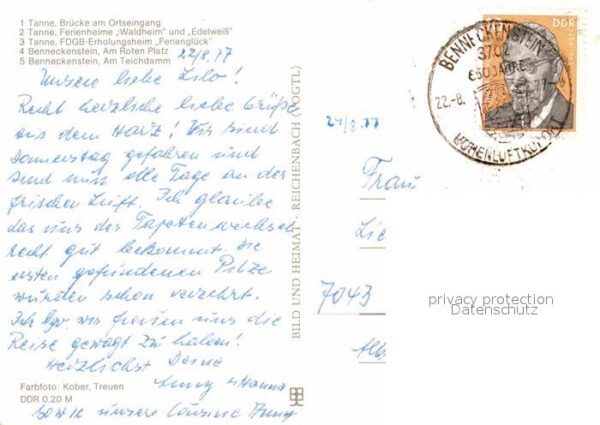 1 Tanne, Brücke am Ortseingang
2 Tanne, Ferienheime „Waldheim" und „Edelweiß"
3 Tanne, FDGB-Erholungsheim „Ferienglück"
4 Benneckenstein, Am Roten Platz
5 Benneckenstein, Am Teichdamm
22/8.77
Unsere liebe Lilo!
Recht herzliche liebe Grüße
aus dem Harz! Wir sind
Donnerstag gefahren und
sind nun alle Tage an der
frischen Luft. Ich glaube
das uns der Tapetenwechsel
recht gut bekommt. Die
ersten gefundenen Pilze
wurden schon verzehrt.
Ich bzw. wir freuen uns die
Reise gewagt zu haben!
Herzlichst Deine
Anny + Hanna
sowie unsere Cousine Anny
Farbfoto: Kober, Treuen
DDR 0,20 M
BILD UND HEIMAT REICHENBACH (VOGTL)
24/8.77
Frau
Lie
7043
DDR
BENNECKENSTEIN
3702
650 JAHRE
22.-8.
HÖHENLUFTKURORT
privacy protection
Datenschutz